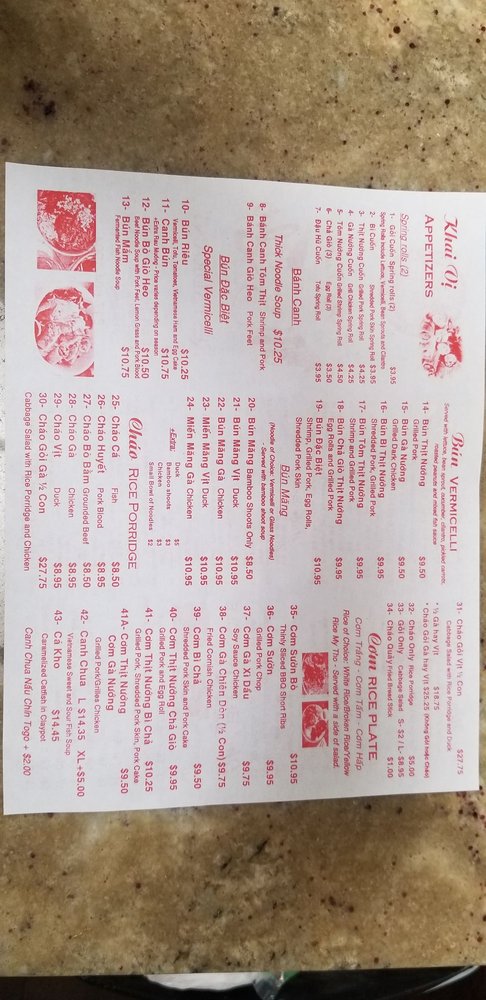 Khai Vị
APPETIZERS
Spring rolls (2)
1- Gỏi Cuốn Spring rolls (2) $3.95
Spring Rolls includes Lettuce, Vermicelli, Bean Sprouts and Cilantro
2- Bì Cuốn Shredded Pork Skin Spring Roll $3.95
3- Thịt Nướng Cuốn Grilled Pork Spring Roll $4.25
4- Gà Nướng Cuốn Grill Chicken Spring Roll $4.25
5- Tôm Nướng Cuốn Grilled Shrimp Spring Roll $4.50
6- Chả Giò (3) Egg Roll (3) $3.50
7- Đậu Hũ Cuốn Tofu Spring Roll $3.95
Bánh Canh
Thick Noodle Soup $10.25
8- Bánh Canh Tôm Thịt Shrimp and Pork
9- Bánh Canh Giò Heo Pork Feet
Bún Đặc Biệt
Special Vermicelli
10- Bún Riêu $10.25
Vermicelli, Tofu, Tomatoes, Vietnamese Ham and Egg Cake
11- Canh Bún $10.75
+Extra Rau Muống - Price varies depending on season
12- Bún Bò Giò Heo $10.50
Beef Noodle Soup with Pork Feet, Lemon Grass and Pork Blood
13- Bún Mắm $10.75
Fermented Fish Noodle Soup
Bún VERMICELLI
Served with lettuce, bean sprout, cucumber, cilantro, pickled carrots,
pickled radishes and mixed fish sauce
14- Bún Thịt Nướng $9.50
Grilled Pork
15- Bún Gà Nướng $9.50
Grilled Dark Chicken
16- Bún Bì Thịt Nướng $9.95
Shredded Pork, Grilled Pork
17- Bún Tôm Thịt Nướng $9.95
Shrimp and Grilled Pork
18- Bún Chả Giò Thịt Nướng $9.95
Egg Rolls and Grilled Pork
19- Bún Đặc Biệt $10.95
Shrimp, Grilled Pork, Egg Rolls,
Shredded Pork Skin
Bún Măng
(Noodle of Choice: Vermicelli or Glass Noodles)
- Served with bamboo shoot soup
20- Bún Măng Bamboo Shoots Only $8.50
21- Bún Măng Vịt Duck $10.95
22- Bún Măng Gà Chicken $10.95
23- Miến Măng Vịt Duck $10.95
24- Miến Măng Gà Chicken $10.95
+Extra:
Duck $5
Bamboo shoots $3
Chicken $3
Small Bowl of Noodles $2
Cháo RICE PORRIDGE
25- Cháo Cá Fish $8.50
26- Cháo Huyết Pork Blood $8.95
27- Cháo Bò Bằm Grounded Beef $8.50
28- Cháo Gà Chicken $8.95
29- Cháo Vịt Duck $8.95
30- Cháo Gỏi Gà ½ Con $27.75
Cabbage Salad with Rice Porridge and Chicken
31- Cháo Gỏi Vịt ½ Con $27.75
Cabbage Salad with Rice Porridge and Duck
* ½ Gà hay Vịt $18.75
* Cháo Gỏi Gà hay Vịt $25.25 (Không Gỏi hoặc Cháo)
32- Cháo Only Rice Porridge $5.00
33- Gỏi Only Cabbage Salad S- $2 / L- $8.95
34- Cháo Quảy Fried Bread Stick $1.00
Cơm RICE PLATE
Cơm Trắng - Cơm Tấm - Cơm Hấp
Rice of Choice: White Rice/Broken Rice/Yellow
Rice My Tho - Served with a side of salad.
35- Cơm Sườn Bò $10.95
Thinly Sliced BBQ Short Ribs
36- Cơm Sườn $9.95
Grilled Pork Chop
37- Cơm Gà Xì Dầu $9.75
Soy Sauce Chicken
38- Cơm Gà Chiên Dòn (½ Con) $9.75
Fried Cornish Chicken
39- Cơm Bì Chả $9.50
Shredded Pork Skin and Pork Cake
40- Cơm Thịt Nướng Chả Giò $9.95
Grilled Pork and Egg Roll
41- Cơm Thịt Nướng Bì Chả $10.25
Grilled Pork, Shredded Pork Skin, Pork Cake
41A- Cơm Thịt Nướng $9.50
- Cơm Gà Nướng
Grilled Pork/Grilles Chicken
42- Canh Chua L $14.35 XL +$5.00
Vietnamese Sweet and Sour Fish Soup
43- Cá Kho Tộ $14.45
Caramelized Catfish in Claypot
Canh Chua Nấu Chín Togo + $2.00